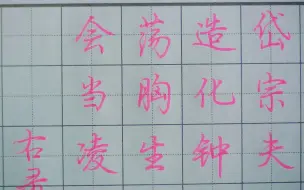 岱宗夫
造化钟
荡胸生
会当凌
右录